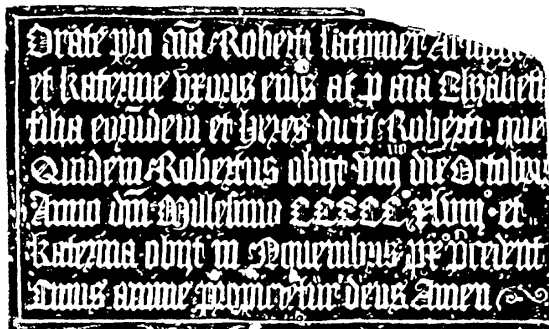 Orate pro aīa Roberti latymer Armigeri
et katerine vxoris eius ac p aīa Elyzabeth
filia eorūdem et heres dicti Roberti: que
Quidem Robertus obijt viij die Octobris
Anno dm̄ Millesimo CCCCC xlviij et
katerina obijt in Nouembris px̄ precedent
animę propicietur deus Amen